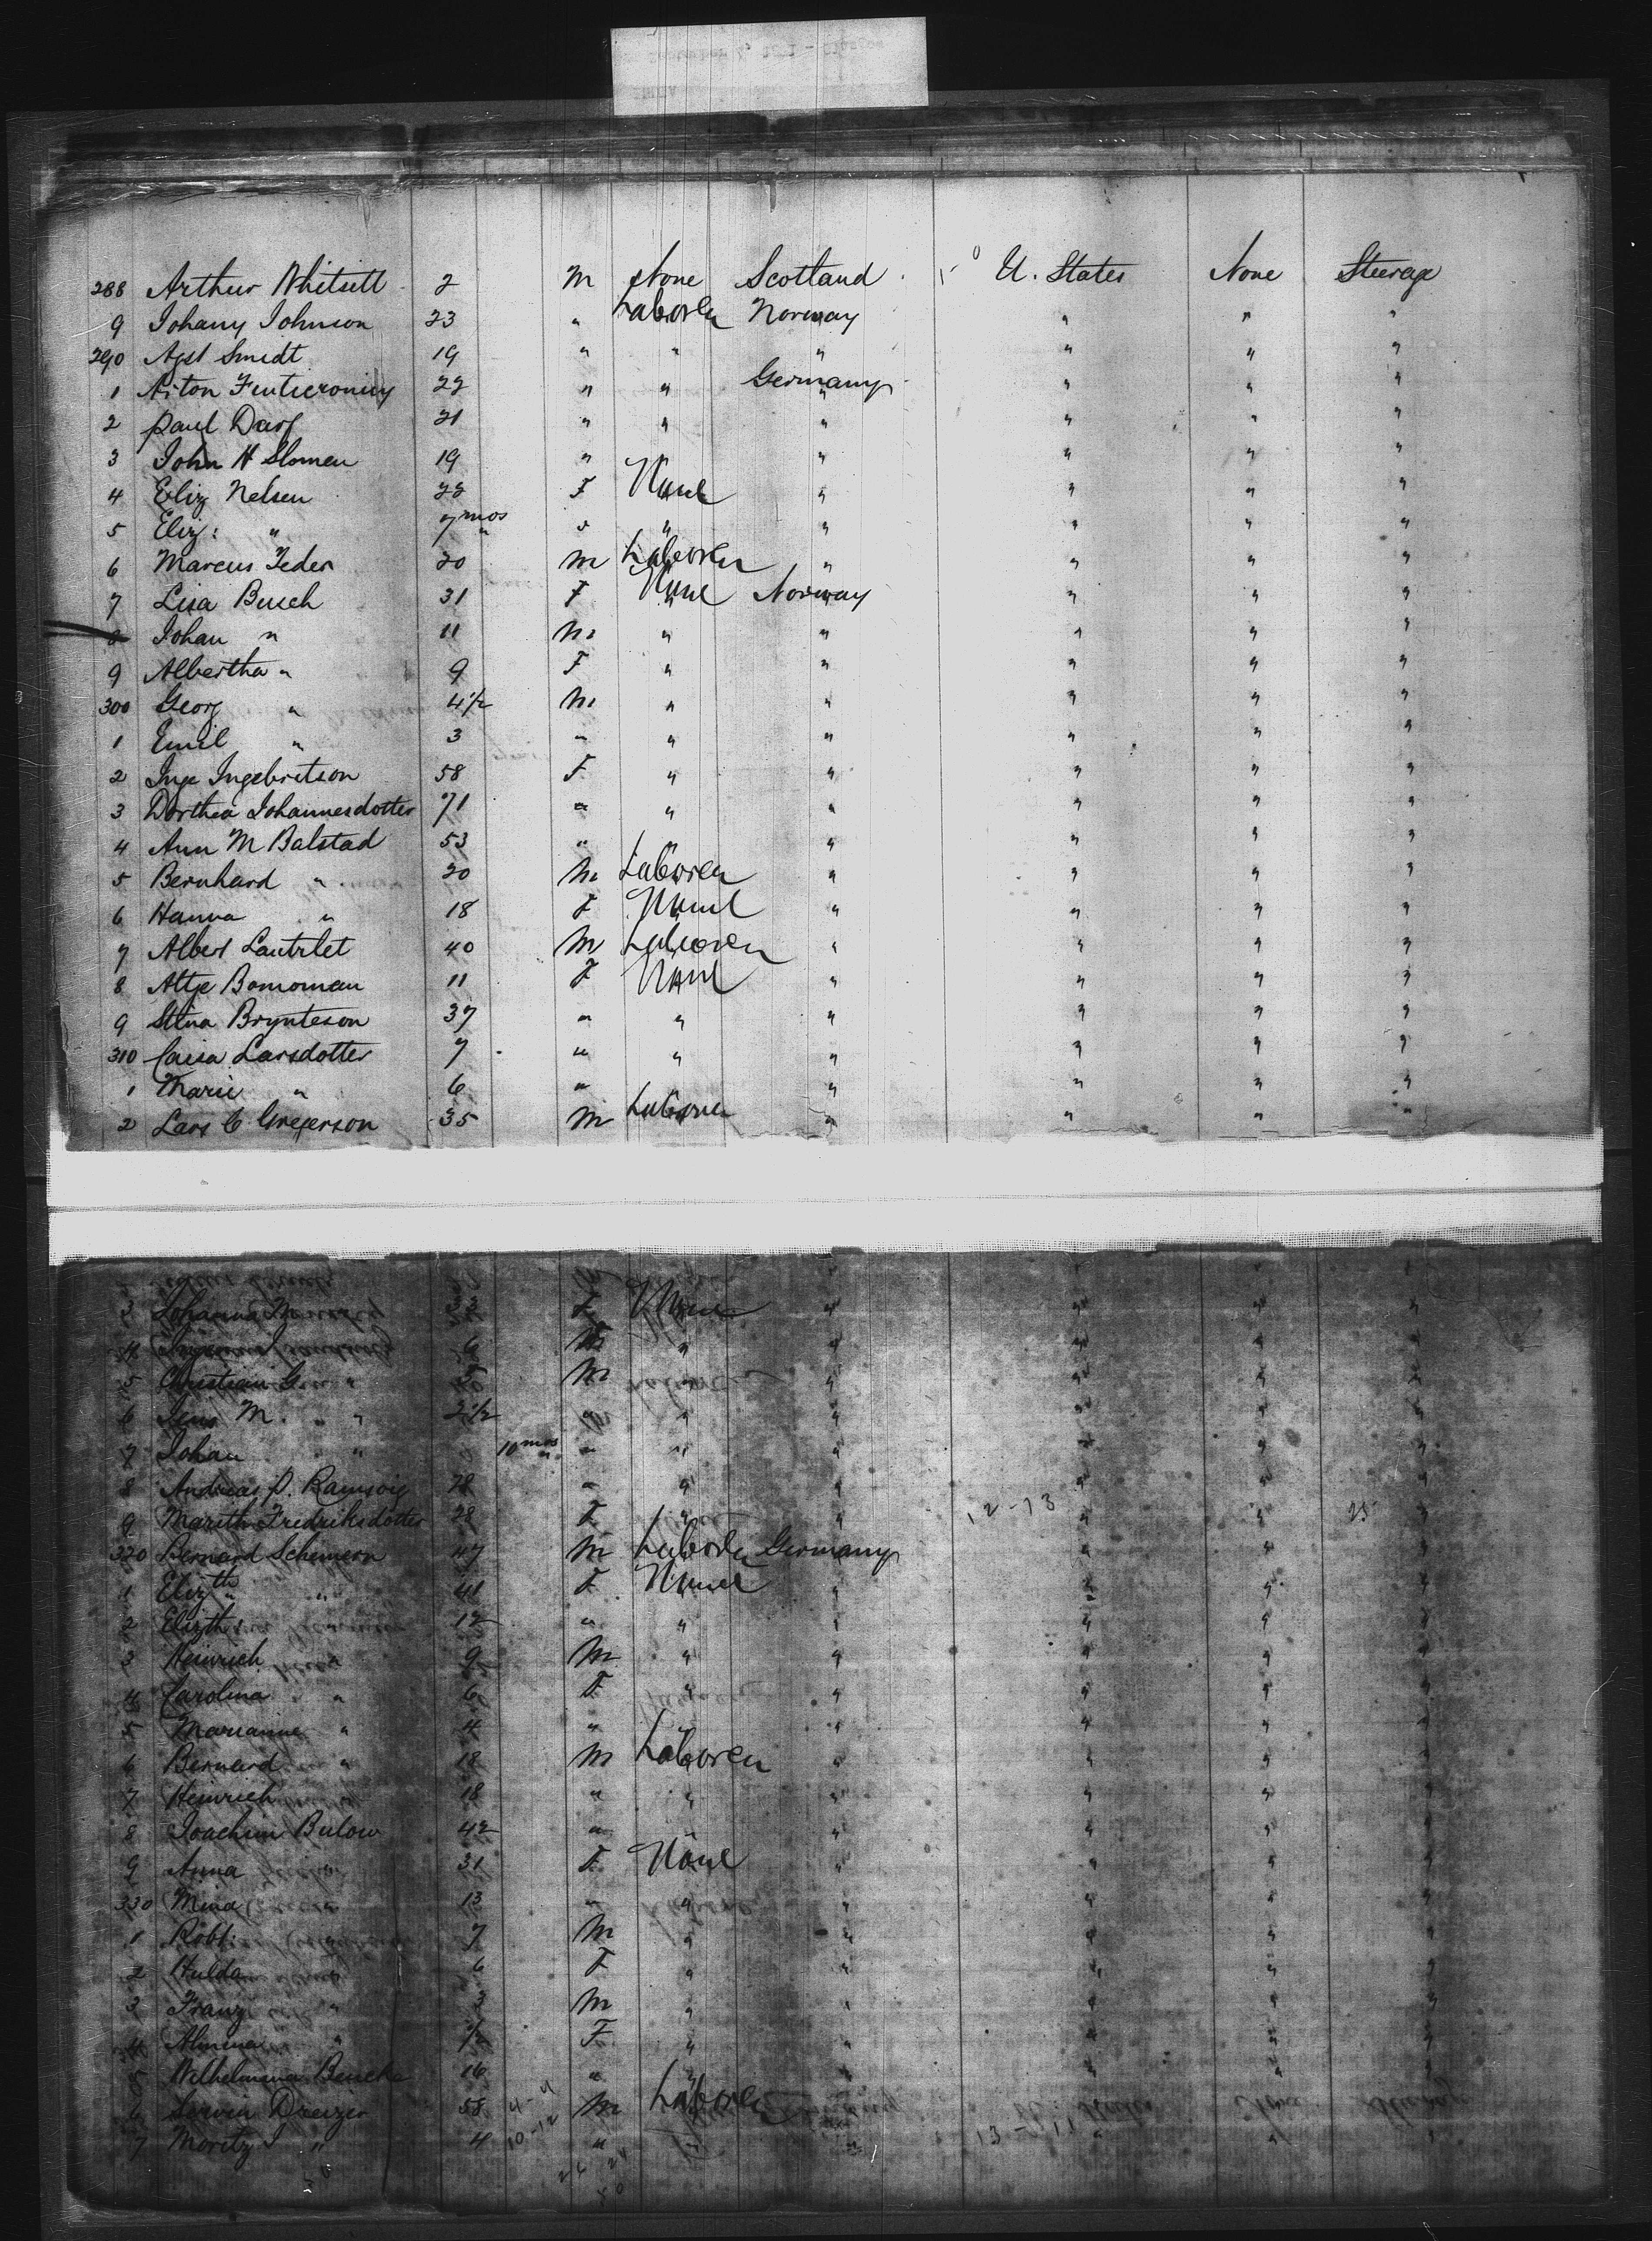 288 Arthur Whitsett 2 M None Scotland U. States None Steerage
9 Johany Johnson 23 " Laborer Norway " " "
290 Agst Smedt 19 " " " " " "
1 22 " " Germany " " "
2 Paul Darf 21 " " " " " "
3 John H Slomen 19 " " " " "
4 Eliz Nelsen 22 F None " " " "
5 Eliz: " 7 mos " " " " " "
6 Marcus Feder 20 M Laborer " " " "
7 Lisa Busch 31 F None Norway " " "
8 Johan " 11 M " " " " "
9 Albertha " 9 F " " " " "
300 Georg " 4 1/2 M " " " " "
1 Emil " 3 " " " " " "
2 Inge Ingebritson 58 F " " " " "
3 Dorthea Johannesdotter 71 " " " " " "
4 Ann M Balstad 53 " " " " " "
5 Bernhard " 20 M Laborer " " " "
6 Hanna " 18 F None " " " "
7 Albert Lautrlet 40 M Laborer " " " "
8 Altje Bomoman 11 F None " " " "
9 Stina Brynteson 37 " " " " " "
310 Caisa Larsdotter 7 " " " " " "
1 Marie " 6 " " " " " "
2 Lars C Gregerson 35 M Laborer " " " "
3 Johanna M 33 F None " " " "
4 6 " " " " "
5 Christian G " 5 M " " " " "
6 Jens M. " 2 1/2 " " " " " "
7 Johan " 10 mos " " " " " "
8 Andreas P. 28 " " " " " "
9 Marith Fredriksdotter 28 F " " 12-13 " " "
320 Bernard Schemern 47 M Laborer Germany " " "
1 Elizth " 41 F None " " " "
2 Elizth " 12 " " " " " "
3 Heinrich " 9 M " " " " "
4 Carolina " 6 F " " " " "
5 Marianne " 4 " " " " " "
6 Bernard " 18 M Laborer " " " "
7 Heinrich " 18 " " " " " "
8 Joachim Bulow 42 " " " " "
9 Anna " 31 F None " " " "
330 Mina " 13 " " " " " "
1 Robt: " 7 M " " " " "
2 Hulda " 6 F " " " " "
3 Franz " 3 M " " " " "
4 Almina " 1/2 F " " " " "
5 Wilhelmina Beneke 16 " " " " " "
6 Dreizer 58 M Laborer
7 Moritz " 4 10-12 " " " " " "